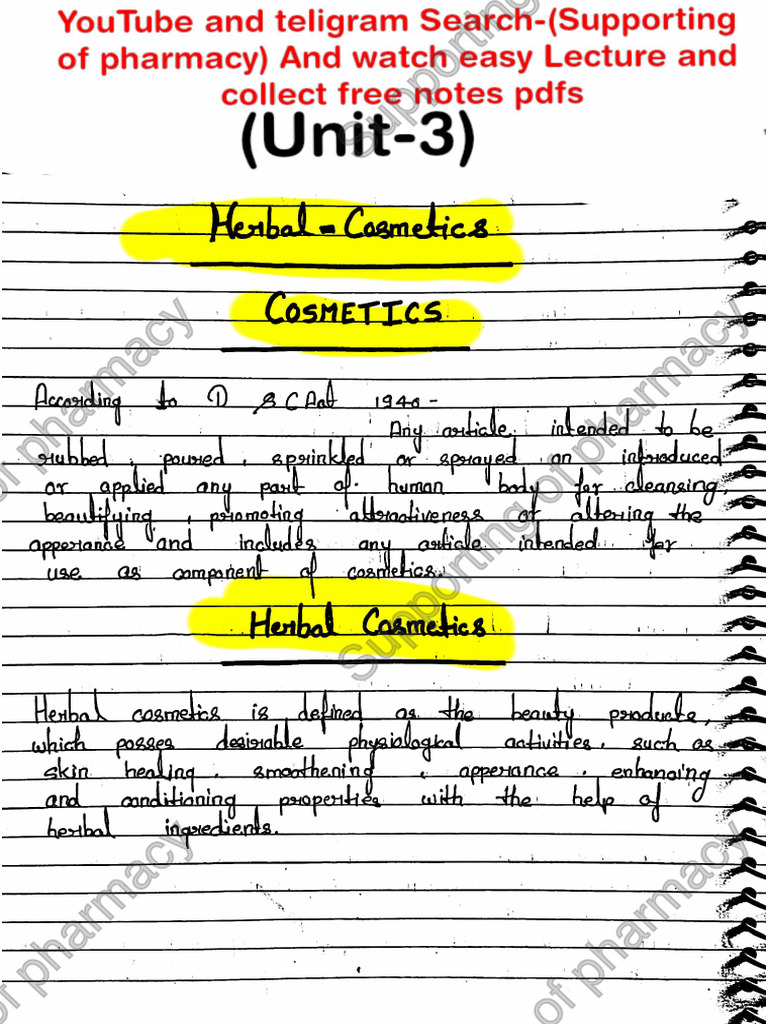 YouTube and teligram Search-(Supporting
of pharmacy) And watch easy Lecture and
collect free notes pdfs
(Unit-3)
Herbal - Cosmetics
COSMETICS
According to D & C Act 1940 -
Any article intended to be
rubbed, poured, sprinkled or sprayed on introduced
or applied any part of human body for cleansing,
beautifying, promoting attractiveness or altering the
apperance and includes any article intended for
use as component of cosmetics.
Herbal Cosmetics
Herbal cosmetics is defined as the beauty products,
which posses desirable physiological activities, such as
skin healing, smoothening, apperance, enhancing
and conditioning properties with the help of
herbal ingredients.
Supporting of pharmacy
of pharmacy
Supporting of pharmacy
of pharmacy
of pharmacy